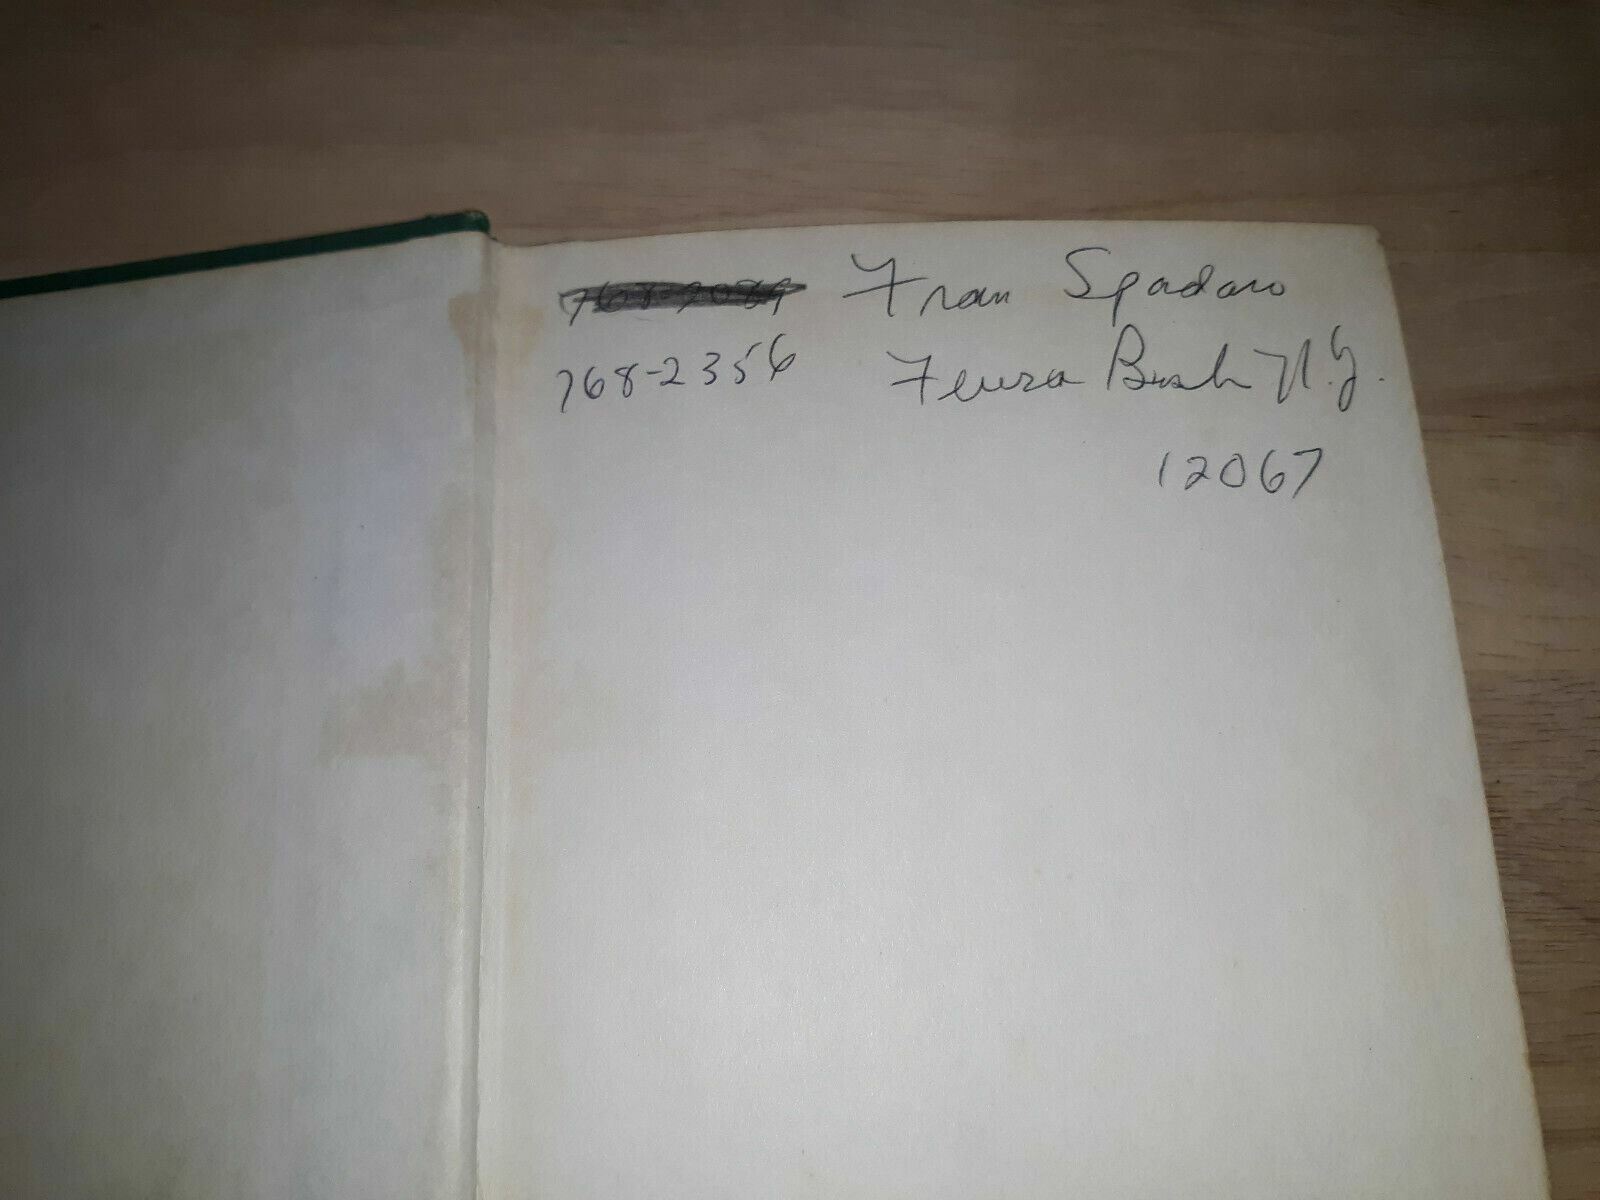 768-2089 Fran Spadaro
768-2356 Feura Bush N.Y.
12067